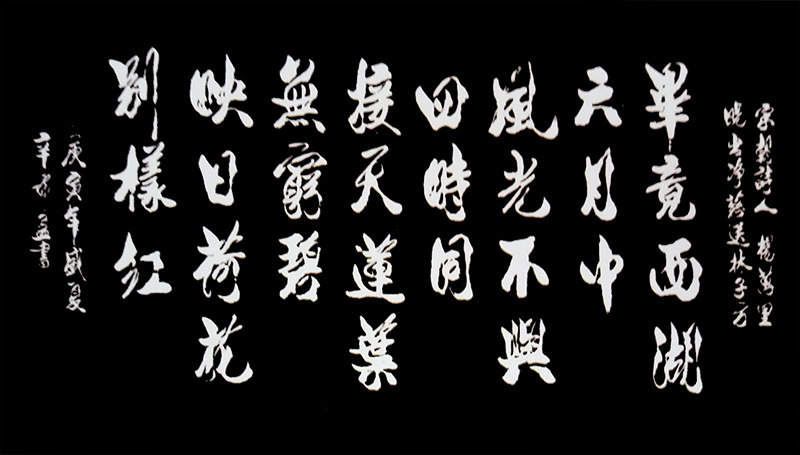 宋朝詩人 楊萬里
晓出净慈送林子方
畢竟西湖
六月中
風光不與
四時同
接天蓮葉
無窮碧
映日荷花
别樣紅
庚寅年盛夏
辛書